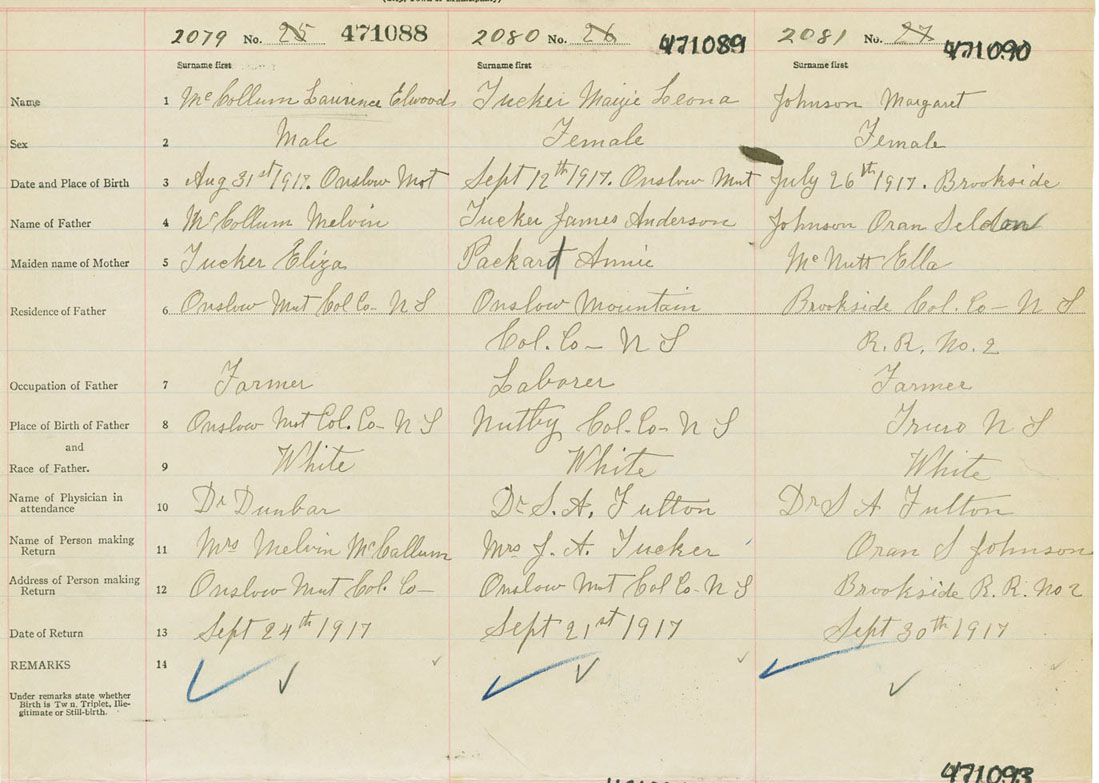 2079 No. 25 471088 2080 No. 26 471089 2081 No. 27 471090
Surname first Surname first Surname first
Name 1 McCollum Laurence Elwood Tucker Maizie Leona Johnson Margaret
Sex 2 Male Female Female
Date and Place of Birth 3 Aug 31st 1917. Onslow Mnt Sept 12th 1917. Onslow Mnt July 26th 1917. Brookside
Name of Father 4 McCollum Melvin Tucker James Anderson Johnson Oran Seldon
Maiden name of Mother 5 Tucker Eliza Packard Annie McNutt Ella
Residence of Father 6 Onslow Mnt Col Co- N S Onslow Mountain Brookside Col. Co- N S
Col. Co- N S R. R. No. 2
Occupation of Father 7 Farmer Laborer Farmer
Place of Birth of Father 8 Onslow Mnt Col. Co- N S Nuttby Col. Co- N S Truro N S
and
Race of Father. 9 White White White
Name of Physician in
attendance 10 Dr Dunbar Dr S. A. Fulton Dr S A Fulton
Name of Person making
Return 11 Mrs Melvin McCallum Mrs J. A. Tucker Oran S Johnson
Address of Person making
Return 12 Onslow Mnt Col. Co- Onslow Mnt Col Co- N S Brookside R. R. No 2
Date of Return 13 Sept 24th 1917 Sept 21st 1917 Sept 30th 1917
REMARKS 14
Under remarks state whether
Birth is Twn, Triplet, Ille-
gitimate or Still-birth.
471093